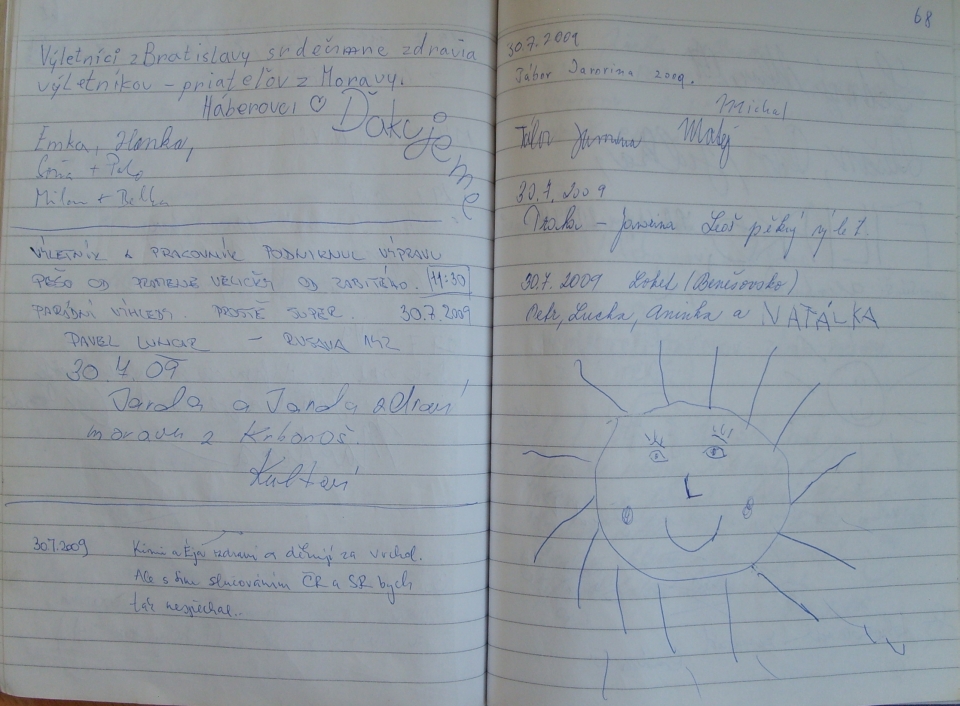 Výletníci z Bratislavy srdečne zdravia
výletníkov - priateľov z Moravy.
Háberovci ♡ Ďakujeme
Emka, Hanka,
Soňa + Peťo
Milan +
VÝLETNÍK A PRACOVNÍK PODNIKNUL VÝPRAVU
PĚŠO OD PRAMENE VELIČKY OD ZABITÉHO. 11:30
PARÁDNÍ VÝHLEDY. PROSTĚ SUPER. 30.7.2009
PAVEL - RUSAVA 142
30. 7. 09
Jarda a Janda zdraví
moravu z Krkonoš.
30.7.2009 a zdraví a děkují za vrchol.
Ale s tím slučováním ČR a SR bych
tak nespěchal..
68
30.7.2009
Tábor Javorina 2009.
Michal
Tábor Javorina Matěj
30.7.2009
- Javorina pěkný výlet.
30.7.2009 Lokel (Benešovsko)
Petr, Lucka, Aninka a NATÁLKA